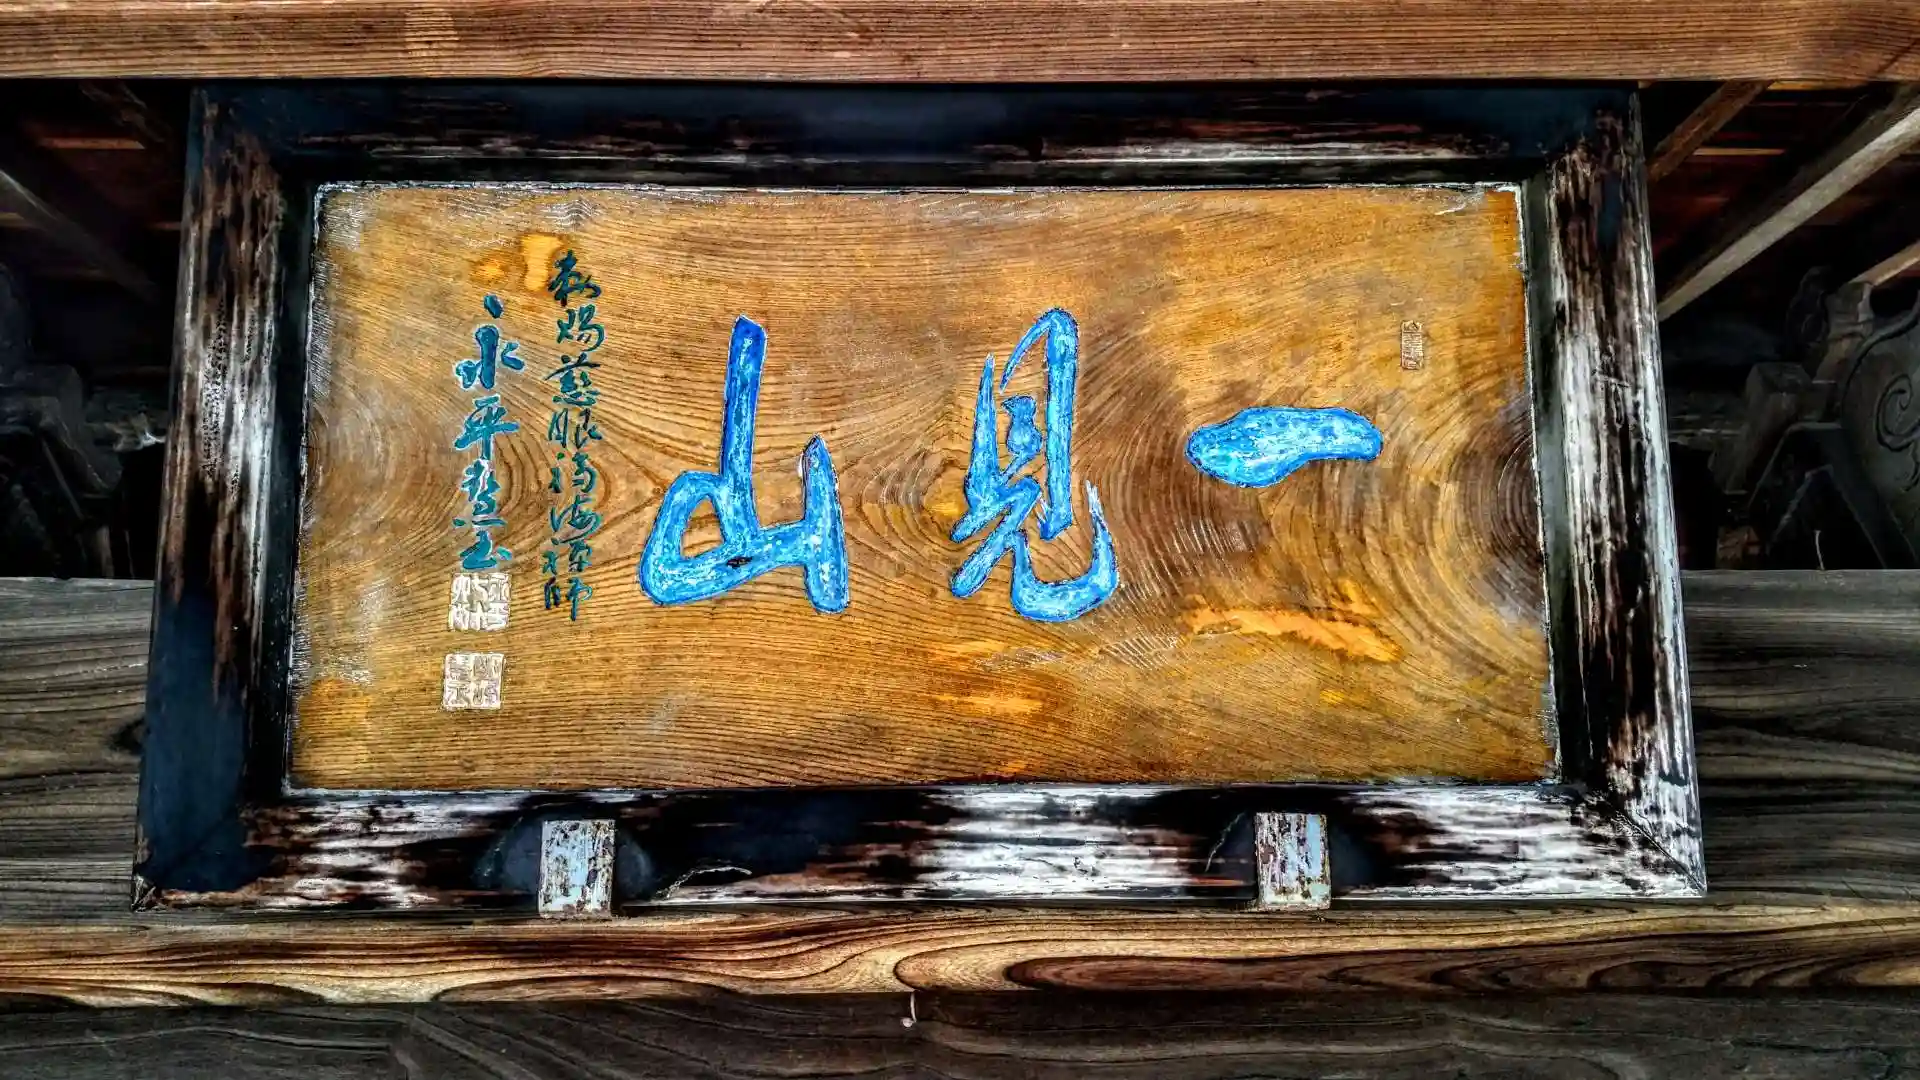 一見山
敕賜慈眼福海禅師
永平慧玉